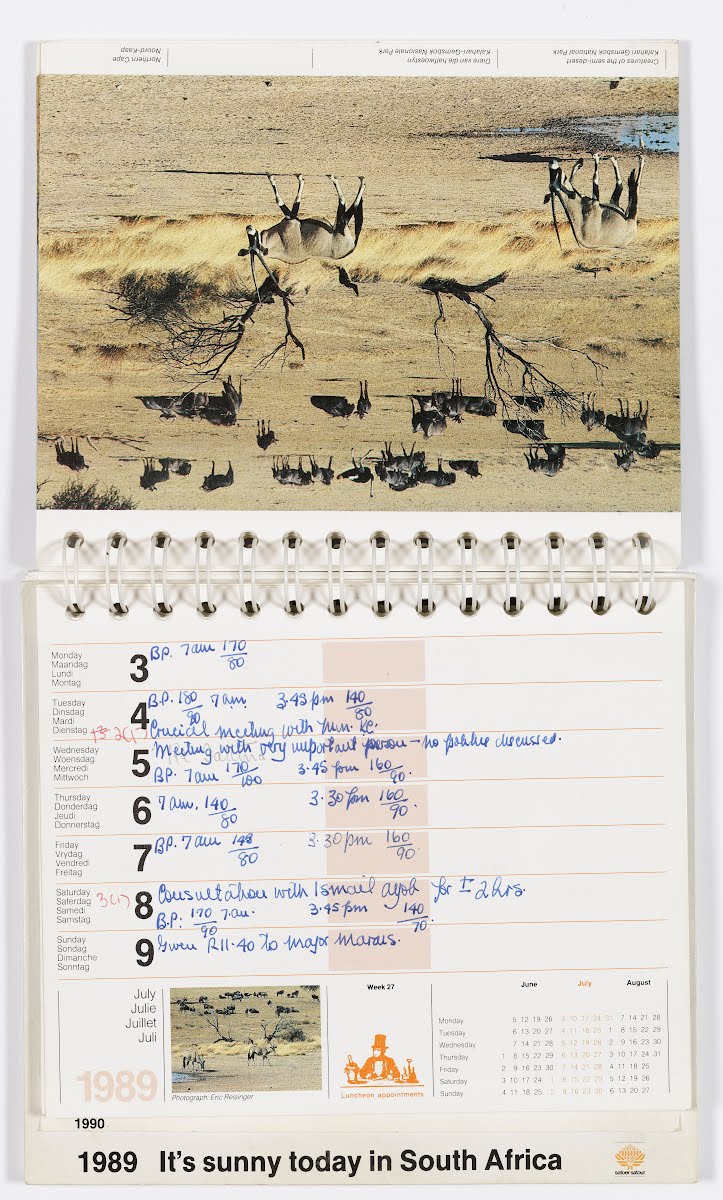 Creatures of the semi-desert
Kalahari Gemsbok National Park
Diere van die halfwoestyn
Kalahari-Gemsbok Nasionale Park
Northern Cape
Noord-Kaap
Monday
Maandag
Lundi
Montag
3
BP. 7am 170/80
Tuesday
Dinsdag
Mardi
Dienstag
4
B.P. 180/90 7am. 3.45pm 140/80
Crucial meeting with min. KC.
Wednesday
Woensdag
Mercredi
Mittwoch
5
Meeting with very important person – no politics discussed.
BP. 7am 170/100 3.45pm 160/90.
Thursday
Donderdag
Jeudi
Donnerstag
6
7am. 140/80 3.30pm 160/90.
Friday
Vrydag
Vendredi
Freitag
7
BP. 7am 148/80 3.30pm 160/90.
Saturday
Saterdag
Samedi
Samstag
3(1)
8
Consultation with Ismail Ayob for ± 2 hrs.
B.P: 170/90 7.am. 3.45pm 140/70.
Sunday
Sondag
Dimanche
Sonntag
9
Given R11.40 to major Marais.
July
Julie
Juillet
Juli
1989
Photograph: Eric Reisinger
Week 27
Luncheon appointments
June July August
Monday 5 12 19 26 3 10 17 24 31 7 14 21 28
Tuesday 6 13 20 27 4 11 18 25 1 8 15 22 29
Wednesday 7 14 21 28 5 12 19 26 2 9 16 23 30
Thursday 1 8 15 22 29 6 13 20 27 3 10 17 24 31
Friday 2 9 16 23 30 7 14 21 28 4 11 18 25
Saturday 3 10 17 24 1 8 15 22 29 5 12 19 26
Sunday 4 11 18 25 2 9 16 23 30 6 13 20 27
1990
1989 It's sunny today in South Africa
satoer·satour